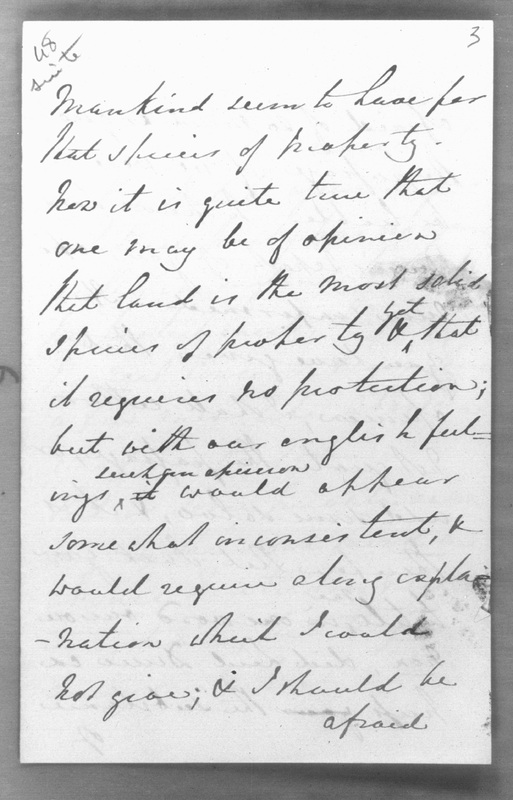 48
3
Mankind seem to have for
that species of property.
Now it is quite true that
one may be of opinion
that land is the most solid
species of property & yet that
it requires no protection;
but with our english feel=
ings, such an opinion would appear
somewhat inconsistent, &
would require along expla-
-nation which I could
not give; & I should be
afraid